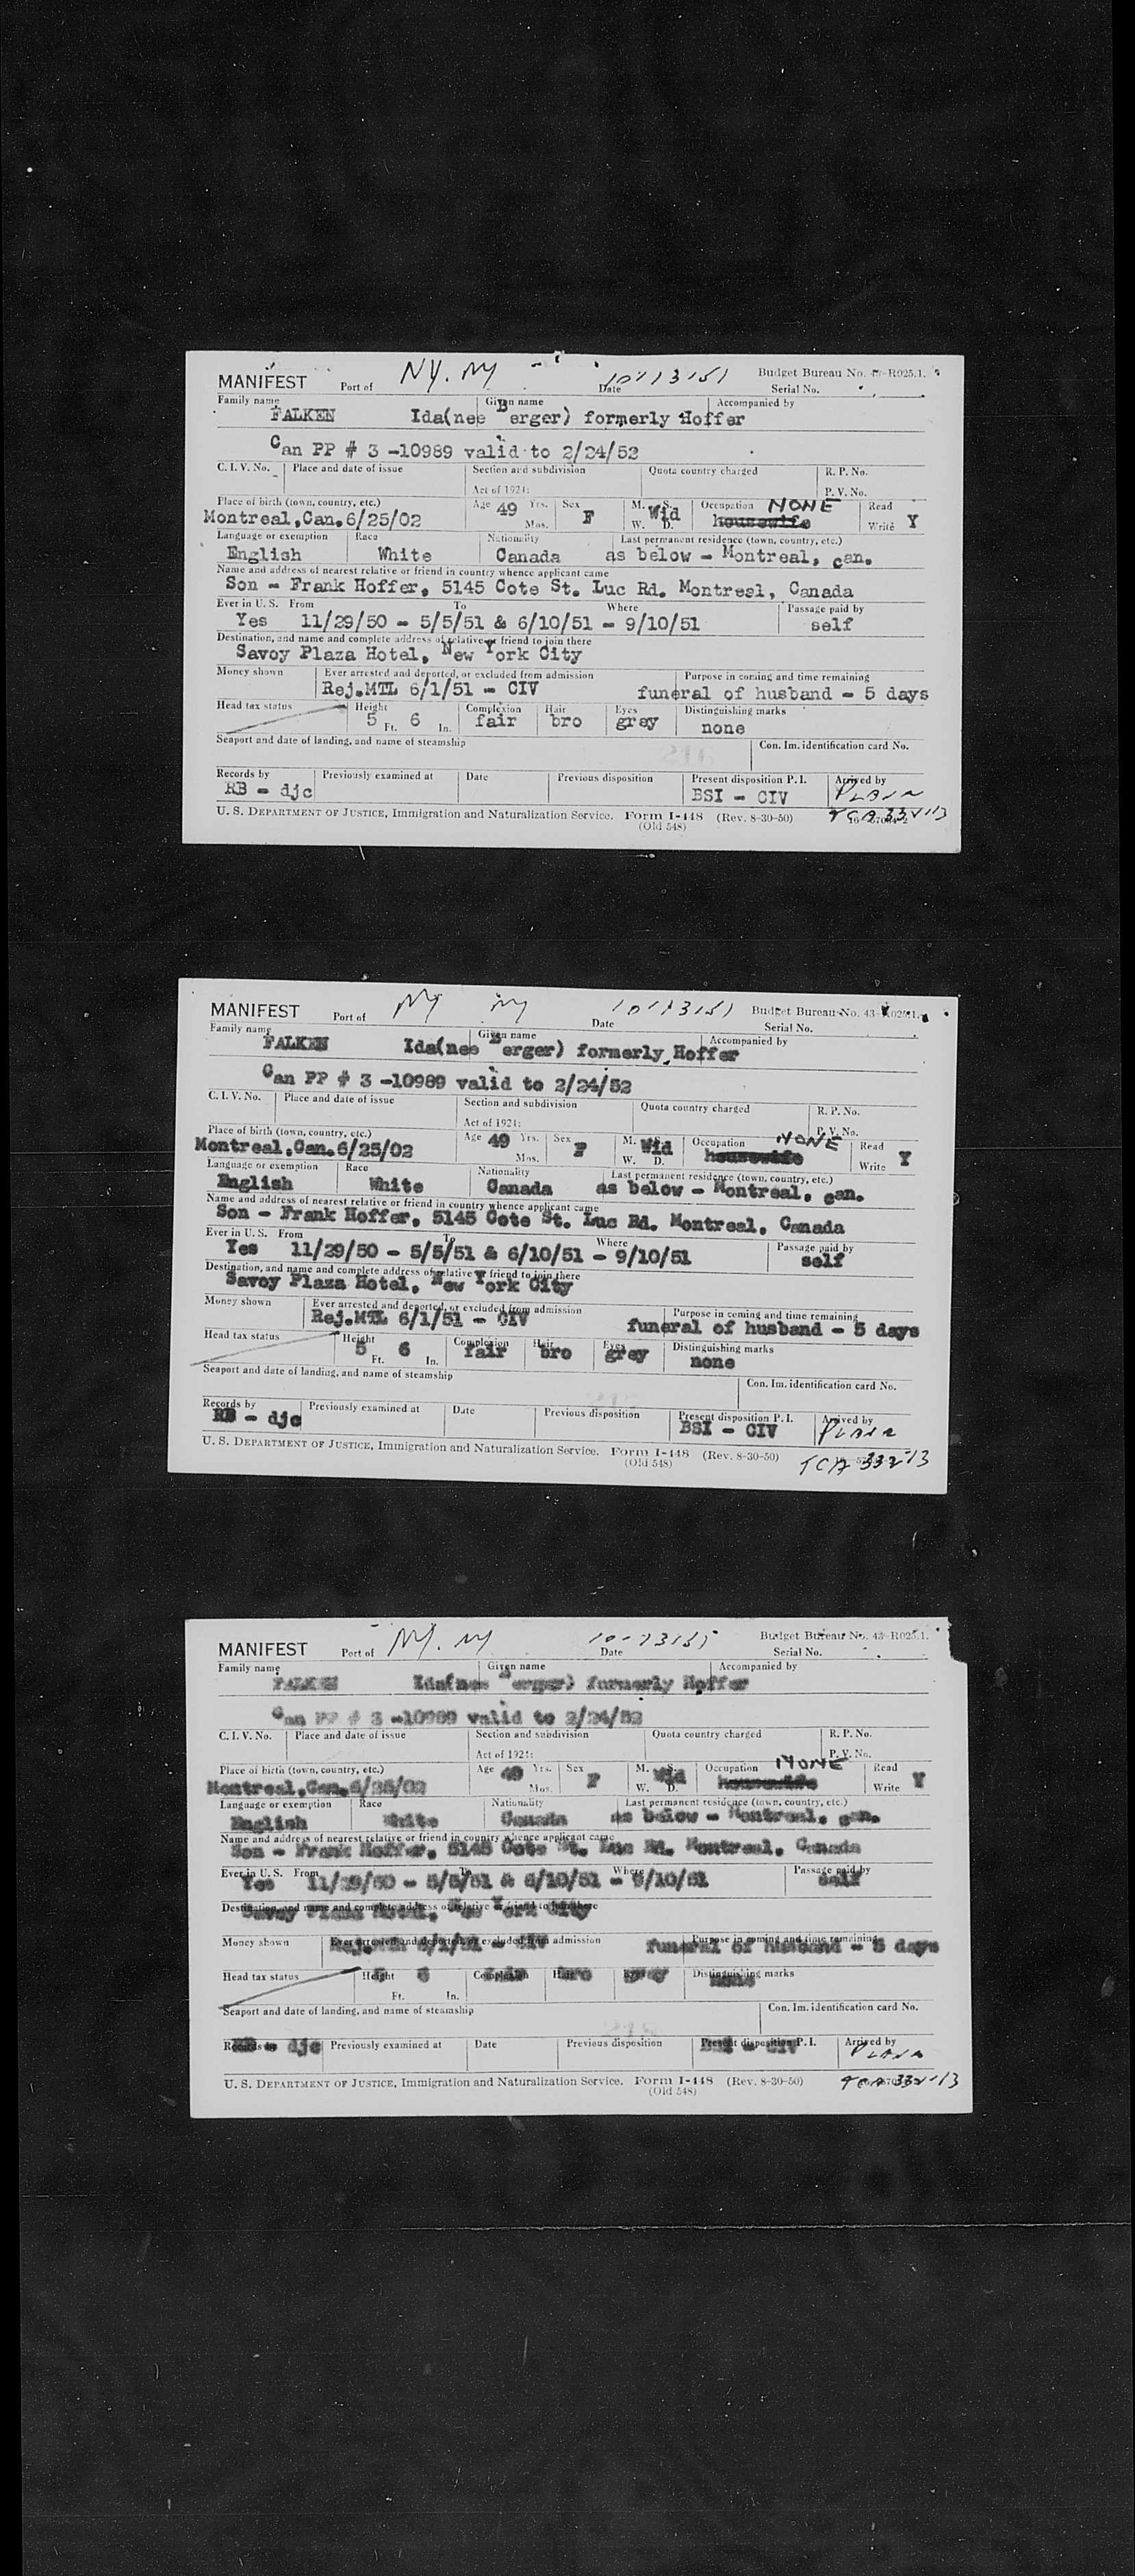 MANIFEST Port of NY. NY Date 10/13/51 Budget Bureau No. 43-R025.1.
Serial No.
Family name Given name Accompanied by
FALKEN Ida(nee Berger) formerly Hoffer
Can PP # 3 -10989 valid to 2/24/52
C. I. V. No. Place and date of issue Section and subdivision Quota country charged R. P. No.
Act of 1924: P. V. No.
Place of birth (town, country, etc.) Age 49 Yrs. Sex M. S. Occupation NONE Read
Montreal,Can.6/25/02 Mos. F W. Wid D. housewife Write Y
Language or exemption Race Nationality Last permanent residence (town, country, etc.)
English White Canada as below - Montreal, can.
Name and address of nearest relative or friend in country whence applicant came
Son - Frank Hoffer, 5145 Cote St. Luc Rd. Montreal, Canada
Ever in U. S. From To Where Passage paid by
Yes 11/29/50 - 5/5/51 & 6/10/51 - 9/10/51 self
Destination, and name and complete address of relative or friend to join there
Savoy Plaza Hotel, New York City
Money shown Ever arrested and deported, or excluded from admission Purpose in coming and time remaining
Rej.MTL 6/1/51 - CIV funeral of husband - 5 days
Head tax status Height Complexion Hair Eyes Distinguishing marks
5 Ft. 6 In. fair bro gray none
Seaport and date of landing, and name of steamship Con. Im. identification card No.
Records by Previously examined at Date Previous disposition Present disposition P. I. Arrived by
RB - djc BSI - CIV PLANE
U. S. DEPARTMENT OF JUSTICE, Immigration and Naturalization Service. Form I-448 (Rev. 8-30-50) TCA
(Old 548)
MANIFEST Port of NY NY Date 10/13/51 Budget Bureau No. 43-R025.1.
Serial No.
Family name Given name Accompanied by
FALKEN Ida(nee Berger) formerly Hoffer
Can PP # 3 -10989 valid to 2/24/52
C. I. V. No. Place and date of issue Section and subdivision Quota country charged R. P. No.
Act of 1924: P. V. No.
Place of birth (town, country, etc.) Age 49 Yrs. Sex M. S. Occupation NONE Read
Montreal,Can.6/25/02 Mos. F W. Wid D. housewife Write Y
Language or exemption Race Nationality Last permanent residence (town, country, etc.)
English White Canada as below - Montreal, can.
Name and address of nearest relative or friend in country whence applicant came
Son - Frank Hoffer, 5145 Cote St. Luc Rd. Montreal, Canada
Ever in U. S. From To Where Passage paid by
Yes 11/29/50 - 5/5/51 & 6/10/51 - 9/10/51 self
Destination, and name and complete address of relative or friend to join there
Savoy Plaza Hotel, New York City
Money shown Ever arrested and deported, or excluded from admission Purpose in coming and time remaining
Rej.MTL 6/1/51 - CIV funeral of husband - 5 days
Head tax status Height Complexion Hair Eyes Distinguishing marks
5 Ft. 6 In. fair bro gray none
Seaport and date of landing, and name of steamship Con. Im. identification card No.
Records by Previously examined at Date Previous disposition Present disposition P. I. Arrived by
RB - djc BSI - CIV PLANE
U. S. DEPARTMENT OF JUSTICE, Immigration and Naturalization Service. Form I-448 (Rev. 8-30-50) TCA
(Old 548)
MANIFEST Port of NY. NY Date 10-13/51 Budget Bureau No. 43-R025.1.
Serial No.
Family name Given name Accompanied by
FALKEN Ida(nee Berger) formerly Hoffer
Can PP # 3 -10989 valid to 2/24/52
C. I. V. No. Place and date of issue Section and subdivision Quota country charged R. P. No.
Act of 1924: P. V. No.
Place of birth (town, country, etc.) Age 49 Yrs. Sex M. S. Occupation NONE Read
Montreal,Can.6/25/02 Mos. F W. Wid D. housewife Write Y
Language or exemption Race Nationality Last permanent residence (town, country, etc.)
English White Canada as below - Montreal, can.
Name and address of nearest relative or friend in country whence applicant came
Son - Frank Hoffer, 5145 Cote St. Luc Rd. Montreal, Canada
Ever in U. S. From To Where Passage paid by
Yes 11/29/50 - 5/5/51 & 6/10/51 - 9/10/51 self
Destination, and name and complete address of relative or friend to join there
Savoy Plaza Hotel, New York City
Money shown Ever arrested and deported, or excluded from admission Purpose in coming and time remaining
Rej.MTL 6/1/51 - CIV funeral of husband - 5 days
Head tax status Height Complexion Hair Eyes Distinguishing marks
5 Ft. 6 In. fair bro gray none
Seaport and date of landing, and name of steamship Con. Im. identification card No.
Records by Previously examined at Date Previous disposition Present disposition P. I. Arrived by
RB - djc BSI - CIV PLANE
U. S. DEPARTMENT OF JUSTICE, Immigration and Naturalization Service. Form I-448 (Rev. 8-30-50) TCA
(Old 548)